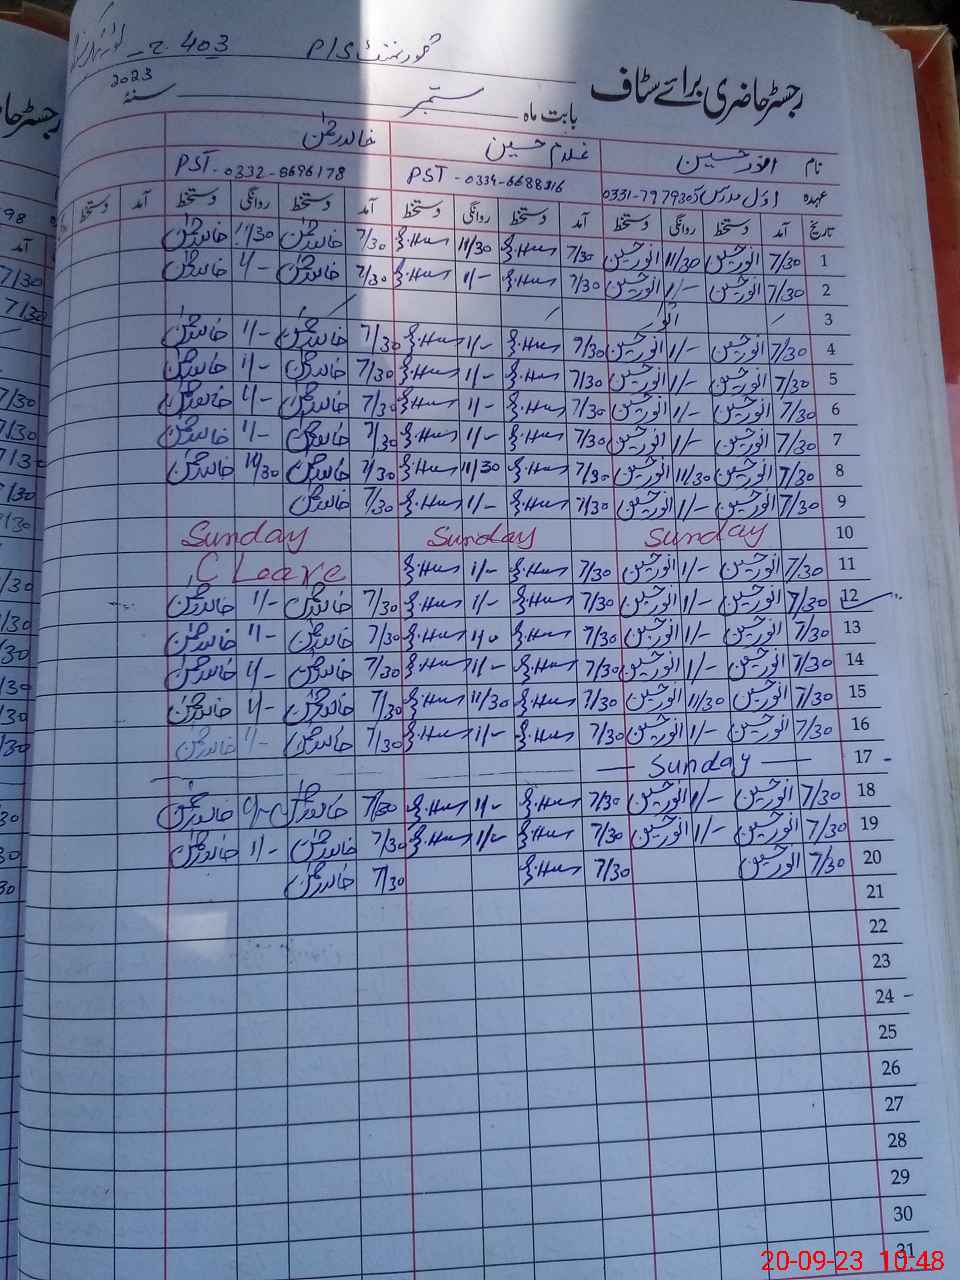 گورنمنٹ P/S 403
رجسٹر حاضری برائے سٹاف
بابت ماہ ستمبر سنہ 2023
نام انور حسین غلام حسین خالد رحمٰن
عہدہ اول مدرس 0331-7979305 PST - 0334-6688816 PST - 0332-8696178
تاریخ آمد دستخط روانگی دستخط آمد دستخط روانگی دستخط آمد دستخط روانگی دستخط آمد دستخط
1 7/30 انور حسین 11/30 انور حسین 7/30 G.Hus 11/30 G.Hus 7/30 خالد رحمٰن 11/30 خالد رحمٰن
2 7/30 انور حسین 1/- انور حسین 7/30 G.Hus 1/- G.Hus 7/30 خالد رحمٰن 1/- خالد رحمٰن
3
4 7/30 انور حسین 1/- انور حسین 7/30 G.Hus 1/- G.Hus 7/30 خالد رحمٰن 1/- خالد رحمٰن
5 7/30 انور حسین 1/- انور حسین 7/30 G.Hus 1/- G.Hus 7/30 خالد رحمٰن 1/- خالد رحمٰن
6 7/30 انور حسین 1/- انور حسین 7/30 G.Hus 1/- G.Hus 7/30 خالد رحمٰن 1/- خالد رحمٰن
7 7/30 انور حسین 1/- انور حسین 7/30 G.Hus 1/- G.Hus 7/30 خالد رحمٰن 1/- خالد رحمٰن
8 7/30 انور حسین 11/30 انور حسین 7/30 G.Hus 11/30 G.Hus 7/30 خالد رحمٰن 11/30 خالد رحمٰن
9 7/30 انور حسین 1/- انور حسین 7/30 G.Hus 1/- G.Hus 7/30 خالد رحمٰن
10 Sunday Sunday Sunday
11 7/30 انور حسین 1/- انور حسین 7/30 G.Hus 1/- G.Hus C Leave
12 7/30 انور حسین 1/- انور حسین 7/30 G.Hus 1/- G.Hus 7/30 خالد رحمٰن 1/- خالد رحمٰن
13 7/30 انور حسین 1/- انور حسین 7/30 G.Hus 1/- G.Hus 7/30 خالد رحمٰن 1/- خالد رحمٰن
14 7/30 انور حسین 1/- انور حسین 7/30 G.Hus 1/- G.Hus 7/30 خالد رحمٰن 1/- خالد رحمٰن
15 7/30 انور حسین 11/30 انور حسین 7/30 G.Hus 11/30 G.Hus 7/30 خالد رحمٰن 1/- خالد رحمٰن
16 7/30 انور حسین 1/- انور حسین 7/30 G.Hus 1/- G.Hus 7/30 خالد رحمٰن 1/- خالد رحمٰن
17 — Sunday —
18 7/30 انور حسین 1/- انور حسین 7/30 G.Hus 1/- G.Hus 7/30 خالد رحمٰن 1/- خالد رحمٰن
19 7/30 انور حسین 1/- انور حسین 7/30 G.Hus 1/- G.Hus 7/30 خالد رحمٰن 1/- خالد رحمٰن
20 7/30 انور حسین 7/30 G.Hus 7/30 خالد رحمٰن
21
22
23
24
25
26
27
28
29
30
31
20-09-23 10:48